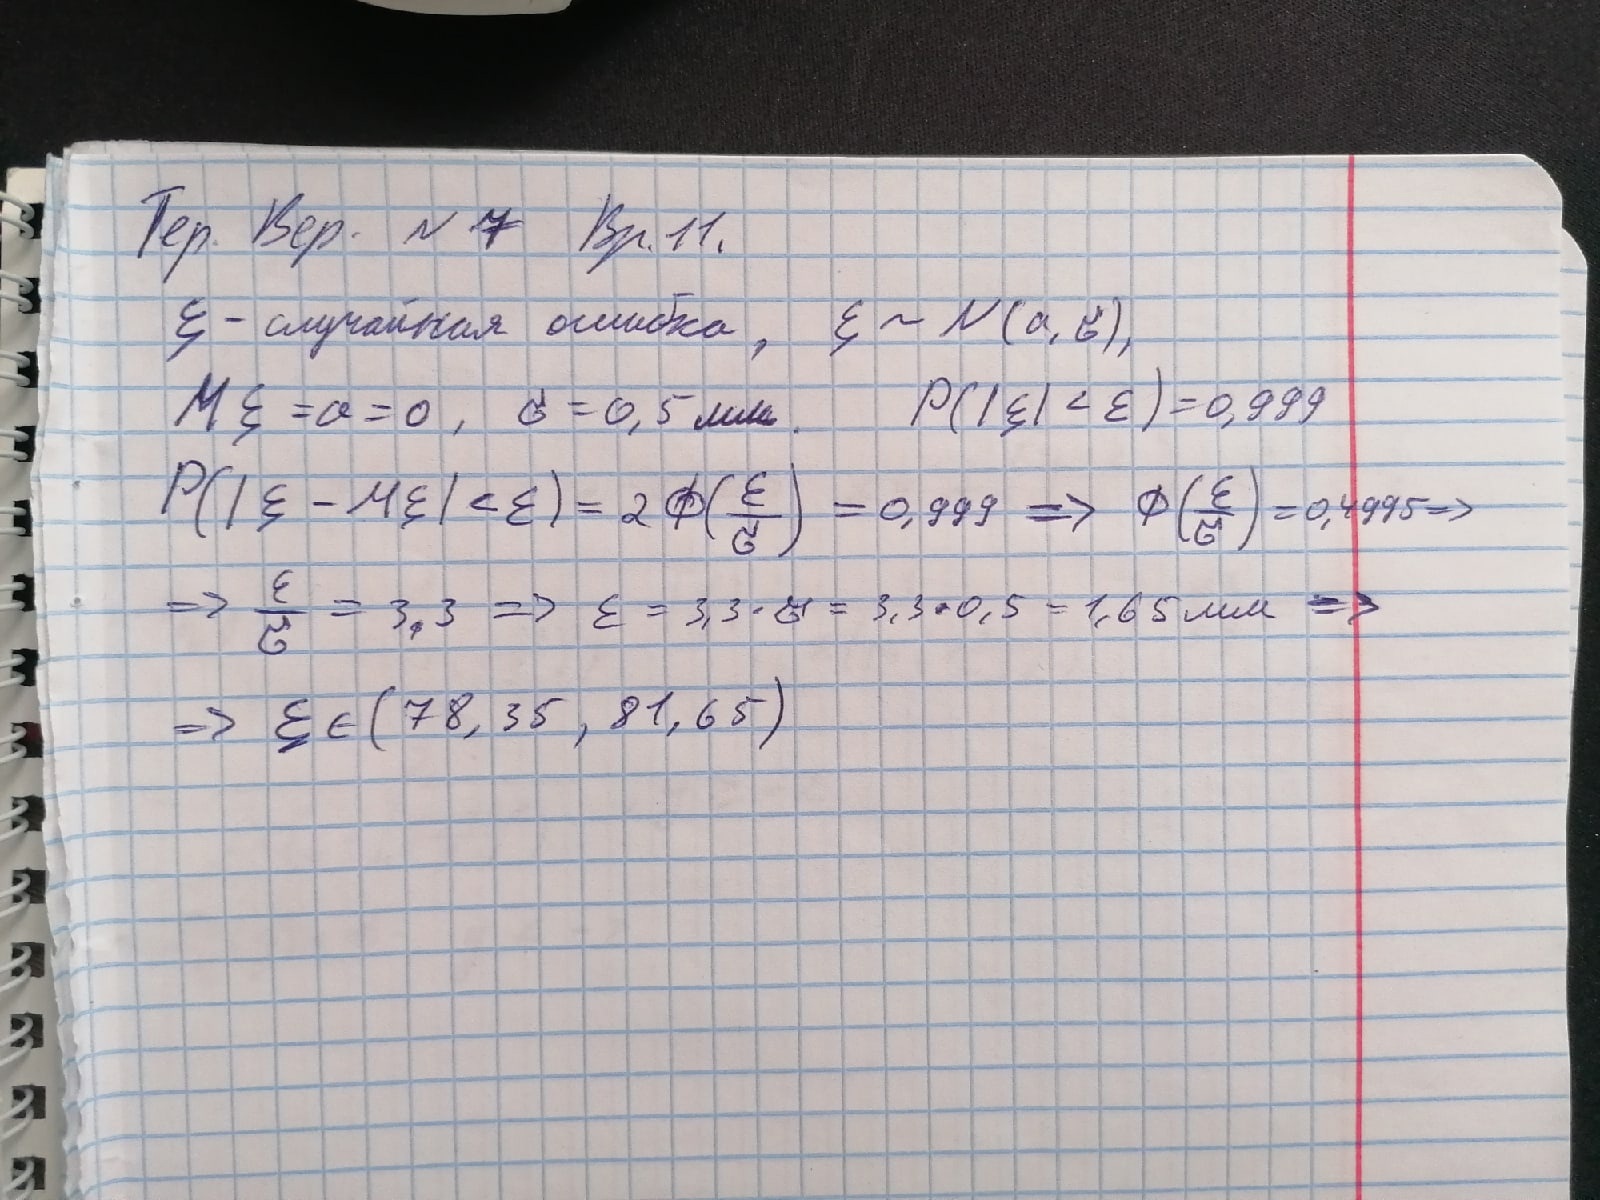 Тер. Вер. № 7 Вр. 11.
ξ - случайная ошибка, ξ ~ N(a, σ),
Mξ = a = 0, σ = 0,5 мм. P(|ξ| < ε) = 0,999
P(|ξ - Mξ| < ε) = 2Ф(ε/σ) = 0,999 => Ф(ε/σ) = 0,4995 =>
=> ε/σ = 3,3 => ε = 3,3·σ = 3,3·0,5 = 1,65 мм =>
=> ξ ∈ (78,35, 81,65)